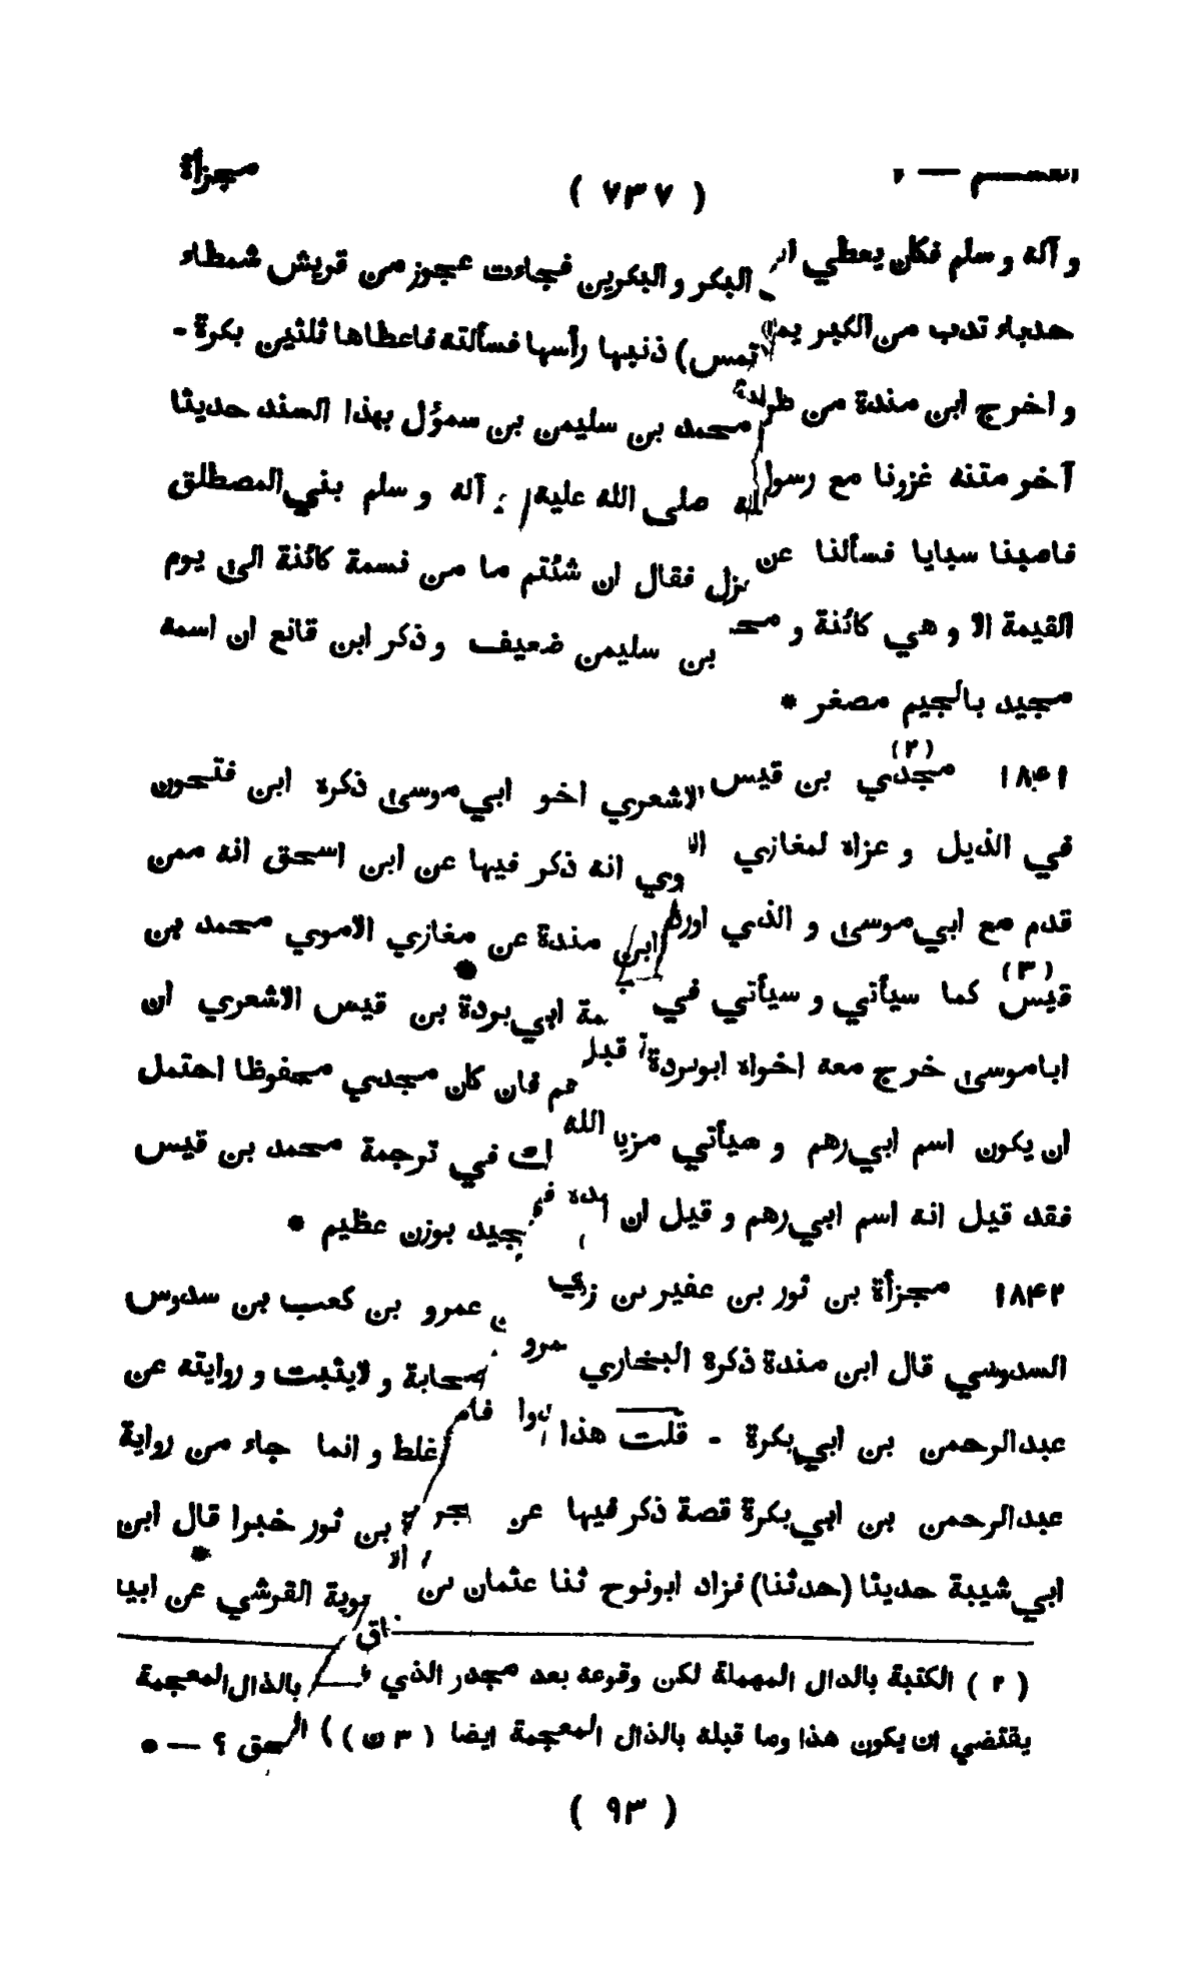 القسم — ١ ( ٧٣٧ ) مجزأة
و آله و سلم فكان يعطي البكر و البكرين فجاءت عجوز من قريش شمطاء
حدباء تدب من الكبر تمس) ذنبها رأسها فسألته فاعطاها ثلثين بكرة -
و اخرج ابن مندة من محمد بن سليمن بن سموُل بهذا السند حديثا
آخر متنه غزونا مع رسول الله صلى الله عليه و آله و سلم بني المصطلق
فاصبنا سبايا فسألنا عن فقال ان شئتم ما من نسمة كائنة الى يوم
القيمة الا و هي كائنة و بن سليمن ضعيف و ذكر ابن قانع ان اسمه
مجيد بالجيم مصغر *
١٨۴١ مجدي (٢) بن قيس الاشعري اخو ابي موسى ذكره ابن فتحون
في الذيل و عزاه لمغازي انه ذكر فيها عن ابن اسحق انه ممن
قدم مع ابي موسى و الذي اورده ابن مندة عن مغازي الاموي محمد بن
قيس (٣) كما سيأتي و سيأتي في ابي بردة بن قيس الاشعري ان
اباموسى خرج معه اخواه ابوبردة فان كان مجدي محفوظا احتمل
ان يكون اسم ابي رهم و سيأتي في ترجمة محمد بن قيس
فقد قيل انه اسم ابي رهم و قيل ان بوزن عظيم *
١٨۴٢ مجزأة بن ثور بن عفير بن عمرو بن كعب بن سدوس
السدوسي قال ابن مندة ذكره البخاري و لايثبت و روايته عن
عبدالرحمن بن ابي بكرة - قلت هذا غلط و انما جاء من رواية
عبدالرحمن بن ابي بكرة قصة ذكر فيها عن بن ثور خبرا قال ابن
ابي شيبة حديثا (حدثنا) قراد ابونوح ثنا عثمان بن القرشي عن ابيه
( ٢ ) الكتبة بالدال المهملة لكن وقوعه بعد مجدر الذي بالذال المعجمة
يقتضي ان يكون هذا وما قبله بالذال المعجمة ايضا ( ٣ ن ) ؟ — *
( ٩٣ )